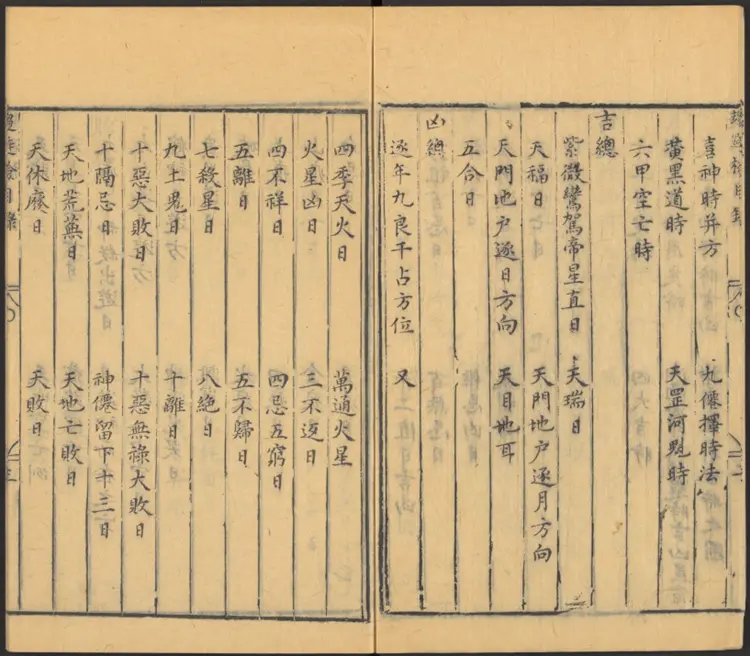 喜神時并方　九僊擇時法
黃黑道時　天罡河魁時
六甲空亡時
吉總
紫微鸞駕帝星直日　天瑞日
天福日　天門地户逐月方向
天門地户逐日方向　天目地耳
五合日
凶總
逐年九良干占方位　又
四季天火日　萬通火星
火星凶日　三不返日
四不祥日　四忌五窮日
五離日　五不歸日
七殺星日　八絕日
九土鬼日　十離日
十惡大敗日　十惡無祿大敗日
十隔忌日　神僊留下十三日
天地荒蕪日　天地亡敗日
天休廢日　天敗日